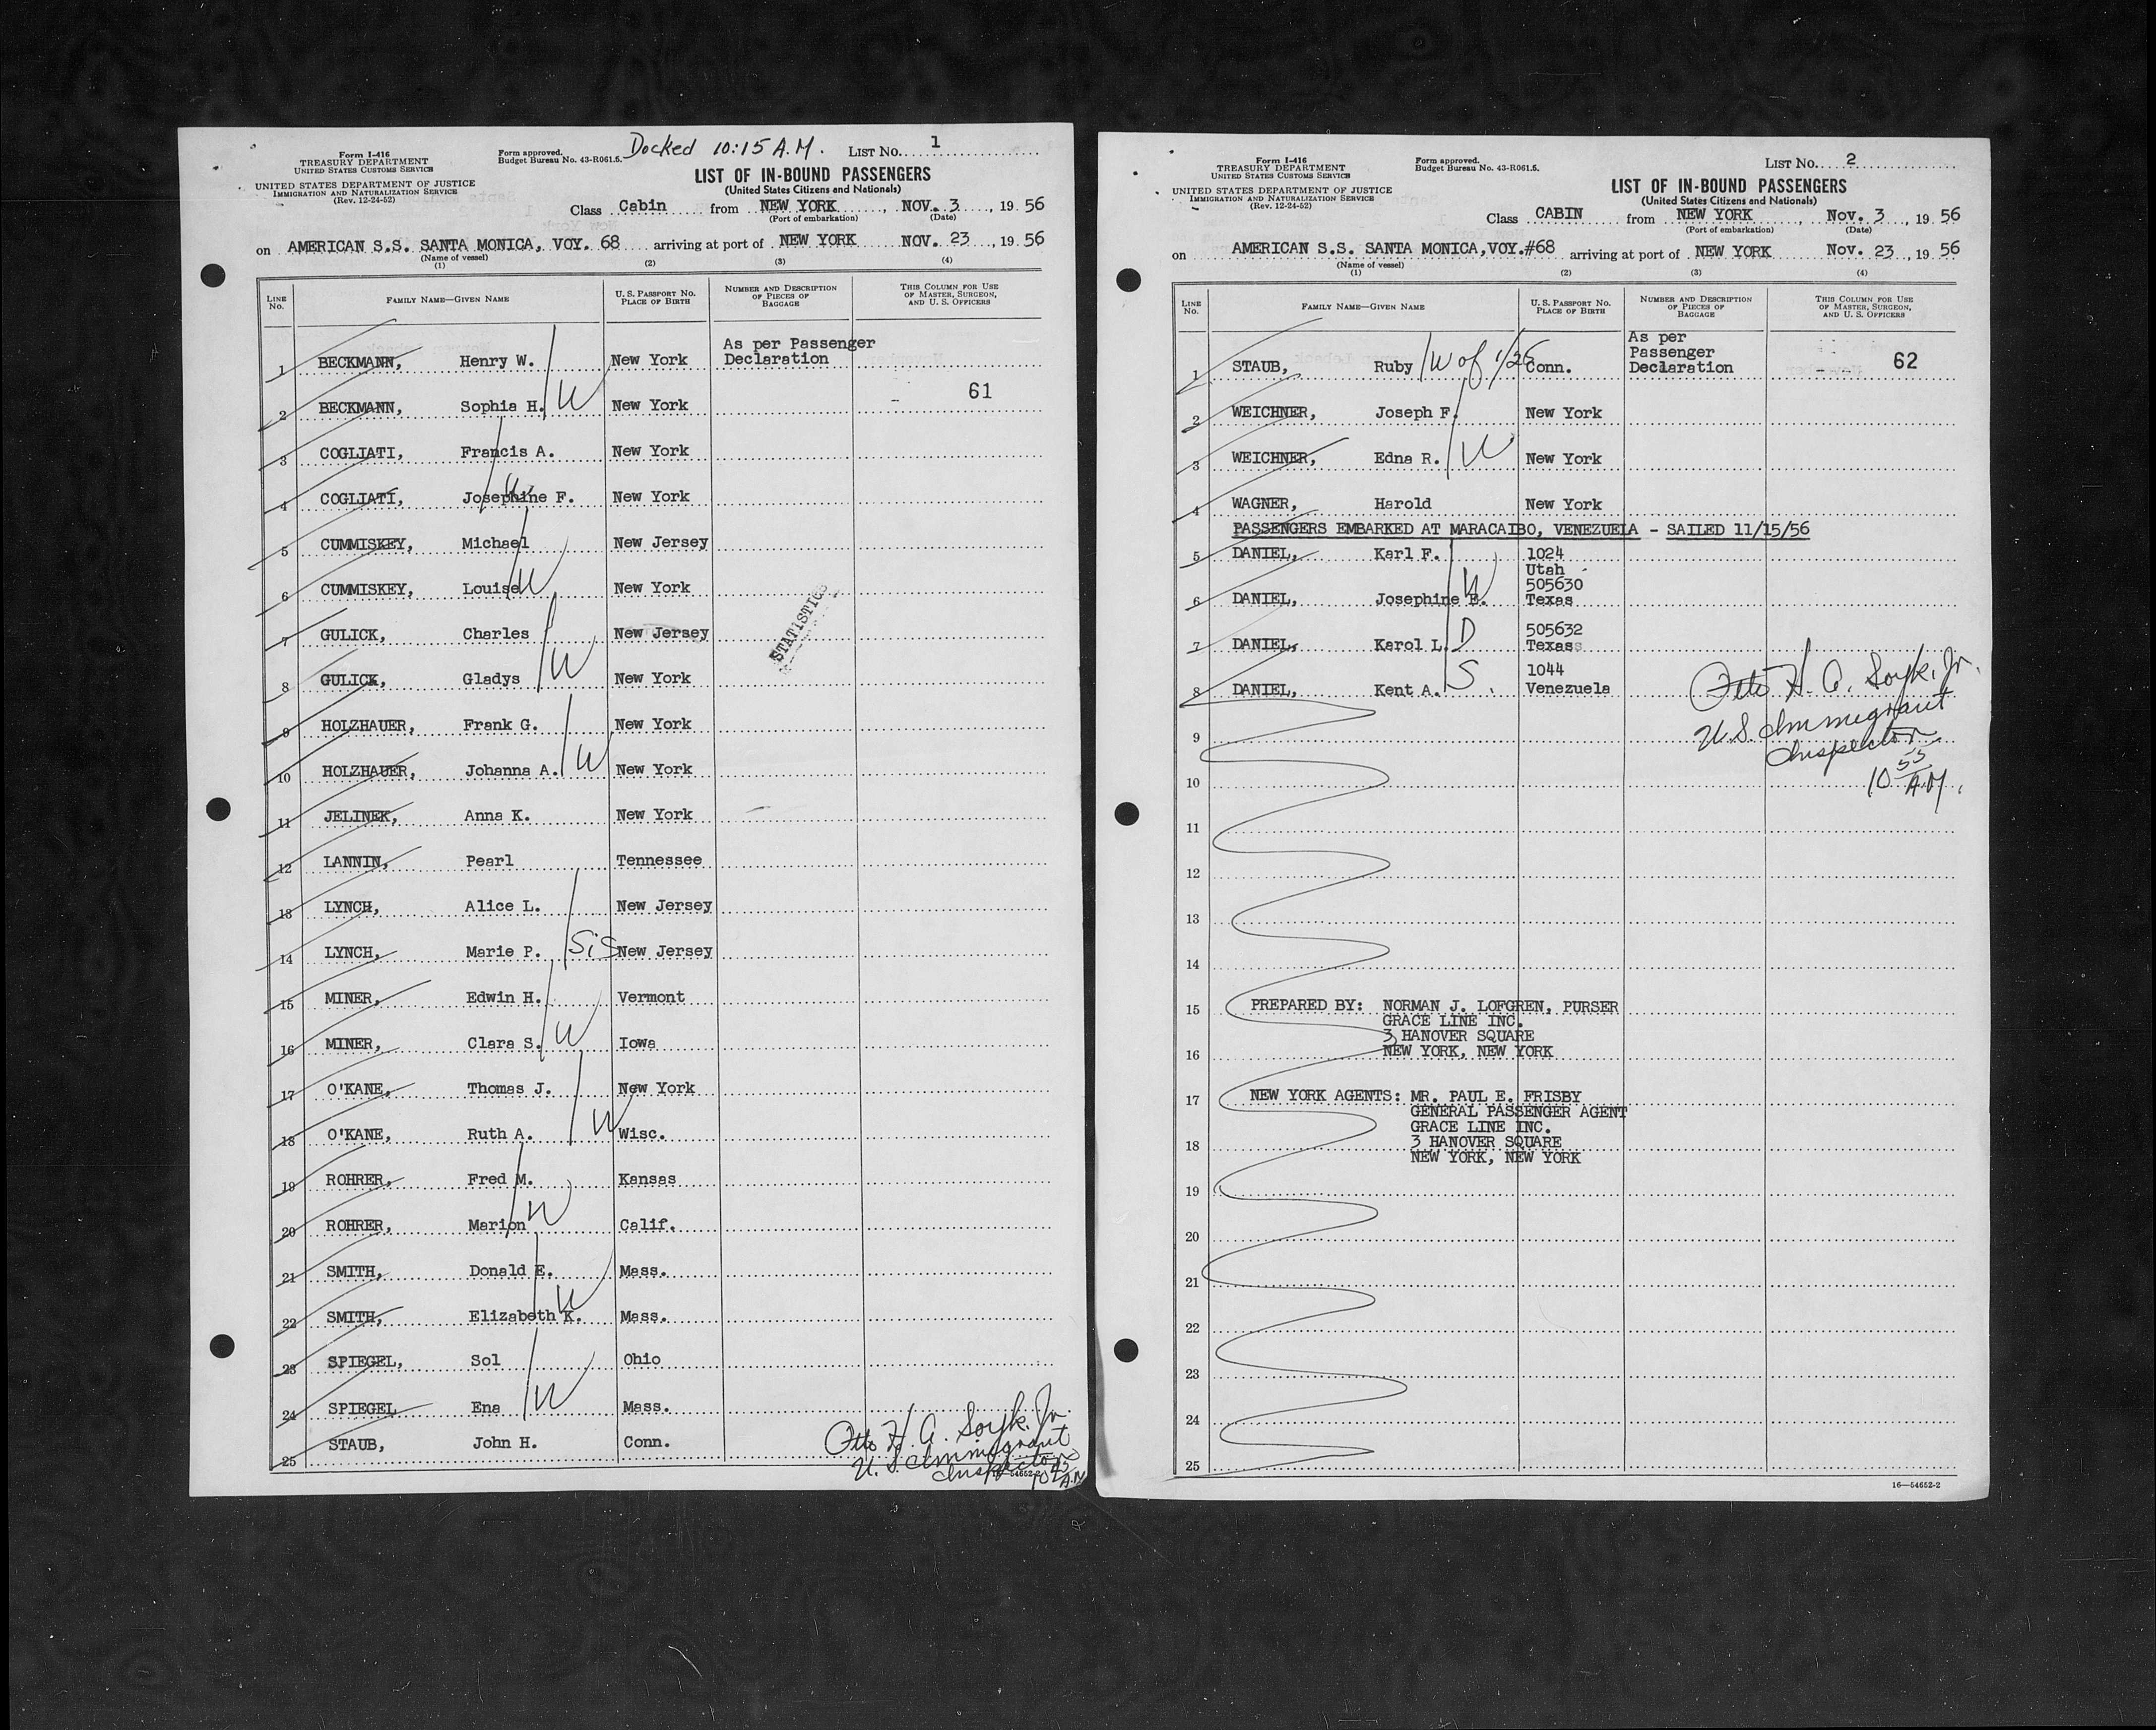 Form I-416
TREASURY DEPARTMENT
UNITED STATES CUSTOMS SERVICE
UNITED STATES DEPARTMENT OF JUSTICE
IMMIGRATION AND NATURALIZATION SERVICE
(Rev. 12-24-52)
Form approved.
Budget Bureau No. 43-R061.5.
Docked 10:15 A.M.
LIST No. 1
LIST OF IN-BOUND PASSENGERS
(United States Citizens and Nationals)
Class Cabin from NEW YORK, NOV. 3, 1956
(Port of embarkation) (Date)
on AMERICAN S.S. SANTA MONICA, VOY. 68 arriving at port of NEW YORK NOV. 23, 1956
(Name of vessel)
(1) (2) (3) (4)
LINE No. FAMILY NAME—GIVEN NAME U. S. PASSPORT No. PLACE OF BIRTH NUMBER AND DESCRIPTION OF PIECES OF BAGGAGE THIS COLUMN FOR USE OF MASTER, SURGEON, AND U. S. OFFICERS
As per Passenger
1 BECKMANN, Henry W. New York Declaration
2 BECKMANN, Sophia H. W New York 61
3 COGLIATI, Francis A. New York
4 COGLIATI, Josephine F. W New York
5 CUMMISKEY, Michael New Jersey
6 CUMMISKEY, Louise W New York
7 GULICK, Charles New Jersey
STATISTICS
8 GULICK, Gladys W New York
9 HOLZHAUER, Frank G. New York
10 HOLZHAUER, Johanna A. W New York
11 JELINEK, Anna K. New York
12 LANNIN, Pearl Tennessee
13 LYNCH, Alice L. New Jersey
14 LYNCH, Marie P. Sis New Jersey
15 MINER, Edwin H. Vermont
16 MINER, Clara S. W Iowa
17 O'KANE, Thomas J. New York
18 O'KANE, Ruth A. W Wisc.
19 ROHRER, Fred M. Kansas
20 ROHRER, Marion W Calif.
21 SMITH, Donald E. Mass.
22 SMITH, Elizabeth K. W Mass.
23 SPIEGEL, Sol Ohio
24 SPIEGEL Ena W Mass.
25 STAUB, John H. Conn.
Otto H. A. Soyk. Jr.
U. S. Immigrant
Inspector
10 45 A.M
Form I-416
TREASURY DEPARTMENT
UNITED STATES CUSTOMS SERVICE
UNITED STATES DEPARTMENT OF JUSTICE
IMMIGRATION AND NATURALIZATION SERVICE
(Rev. 12-24-52)
Form approved.
Budget Bureau No. 43-R061.5.
LIST No. 2
LIST OF IN-BOUND PASSENGERS
(United States Citizens and Nationals)
Class CABIN from NEW YORK, Nov. 3, 1956
(Port of embarkation) (Date)
on AMERICAN S.S. SANTA MONICA,VOY.#68 arriving at port of NEW YORK Nov. 23, 1956
(Name of vessel)
(1) (2) (3) (4)
LINE No. FAMILY NAME—GIVEN NAME U. S. PASSPORT No. PLACE OF BIRTH NUMBER AND DESCRIPTION OF PIECES OF BAGGAGE THIS COLUMN FOR USE OF MASTER, SURGEON, AND U. S. OFFICERS
As per
Passenger
1 STAUB, Ruby W of 1/25 Conn. Declaration 62
2 WEICHNER, Joseph F. New York
3 WEICHNER, Edna R. W New York
4 WAGNER, Harold New York
PASSENGERS EMBARKED AT MARACAIBO, VENEZUELA - SAILED 11/15/56
5 DANIEL, Karl F. 1024
Utah
505630
6 DANIEL, Josephine E. W Texas
505632
7 DANIEL, Karol L. D Texas
1044
8 DANIEL, Kent A. S Venezuela
Otto H. A. Soyk. Jr.
U. S. Immigrant
Inspector
10 55 A.M.
9
10
11
12
13
14
15 PREPARED BY: NORMAN J. LOFGREN, PURSER
GRACE LINE INC.
3 HANOVER SQUARE
16 NEW YORK, NEW YORK
17 NEW YORK AGENTS: MR. PAUL E. FRISBY
GENERAL PASSENGER AGENT
GRACE LINE INC.
18 3 HANOVER SQUARE
NEW YORK, NEW YORK
19
20
21
22
23
24
25
16—54652-2